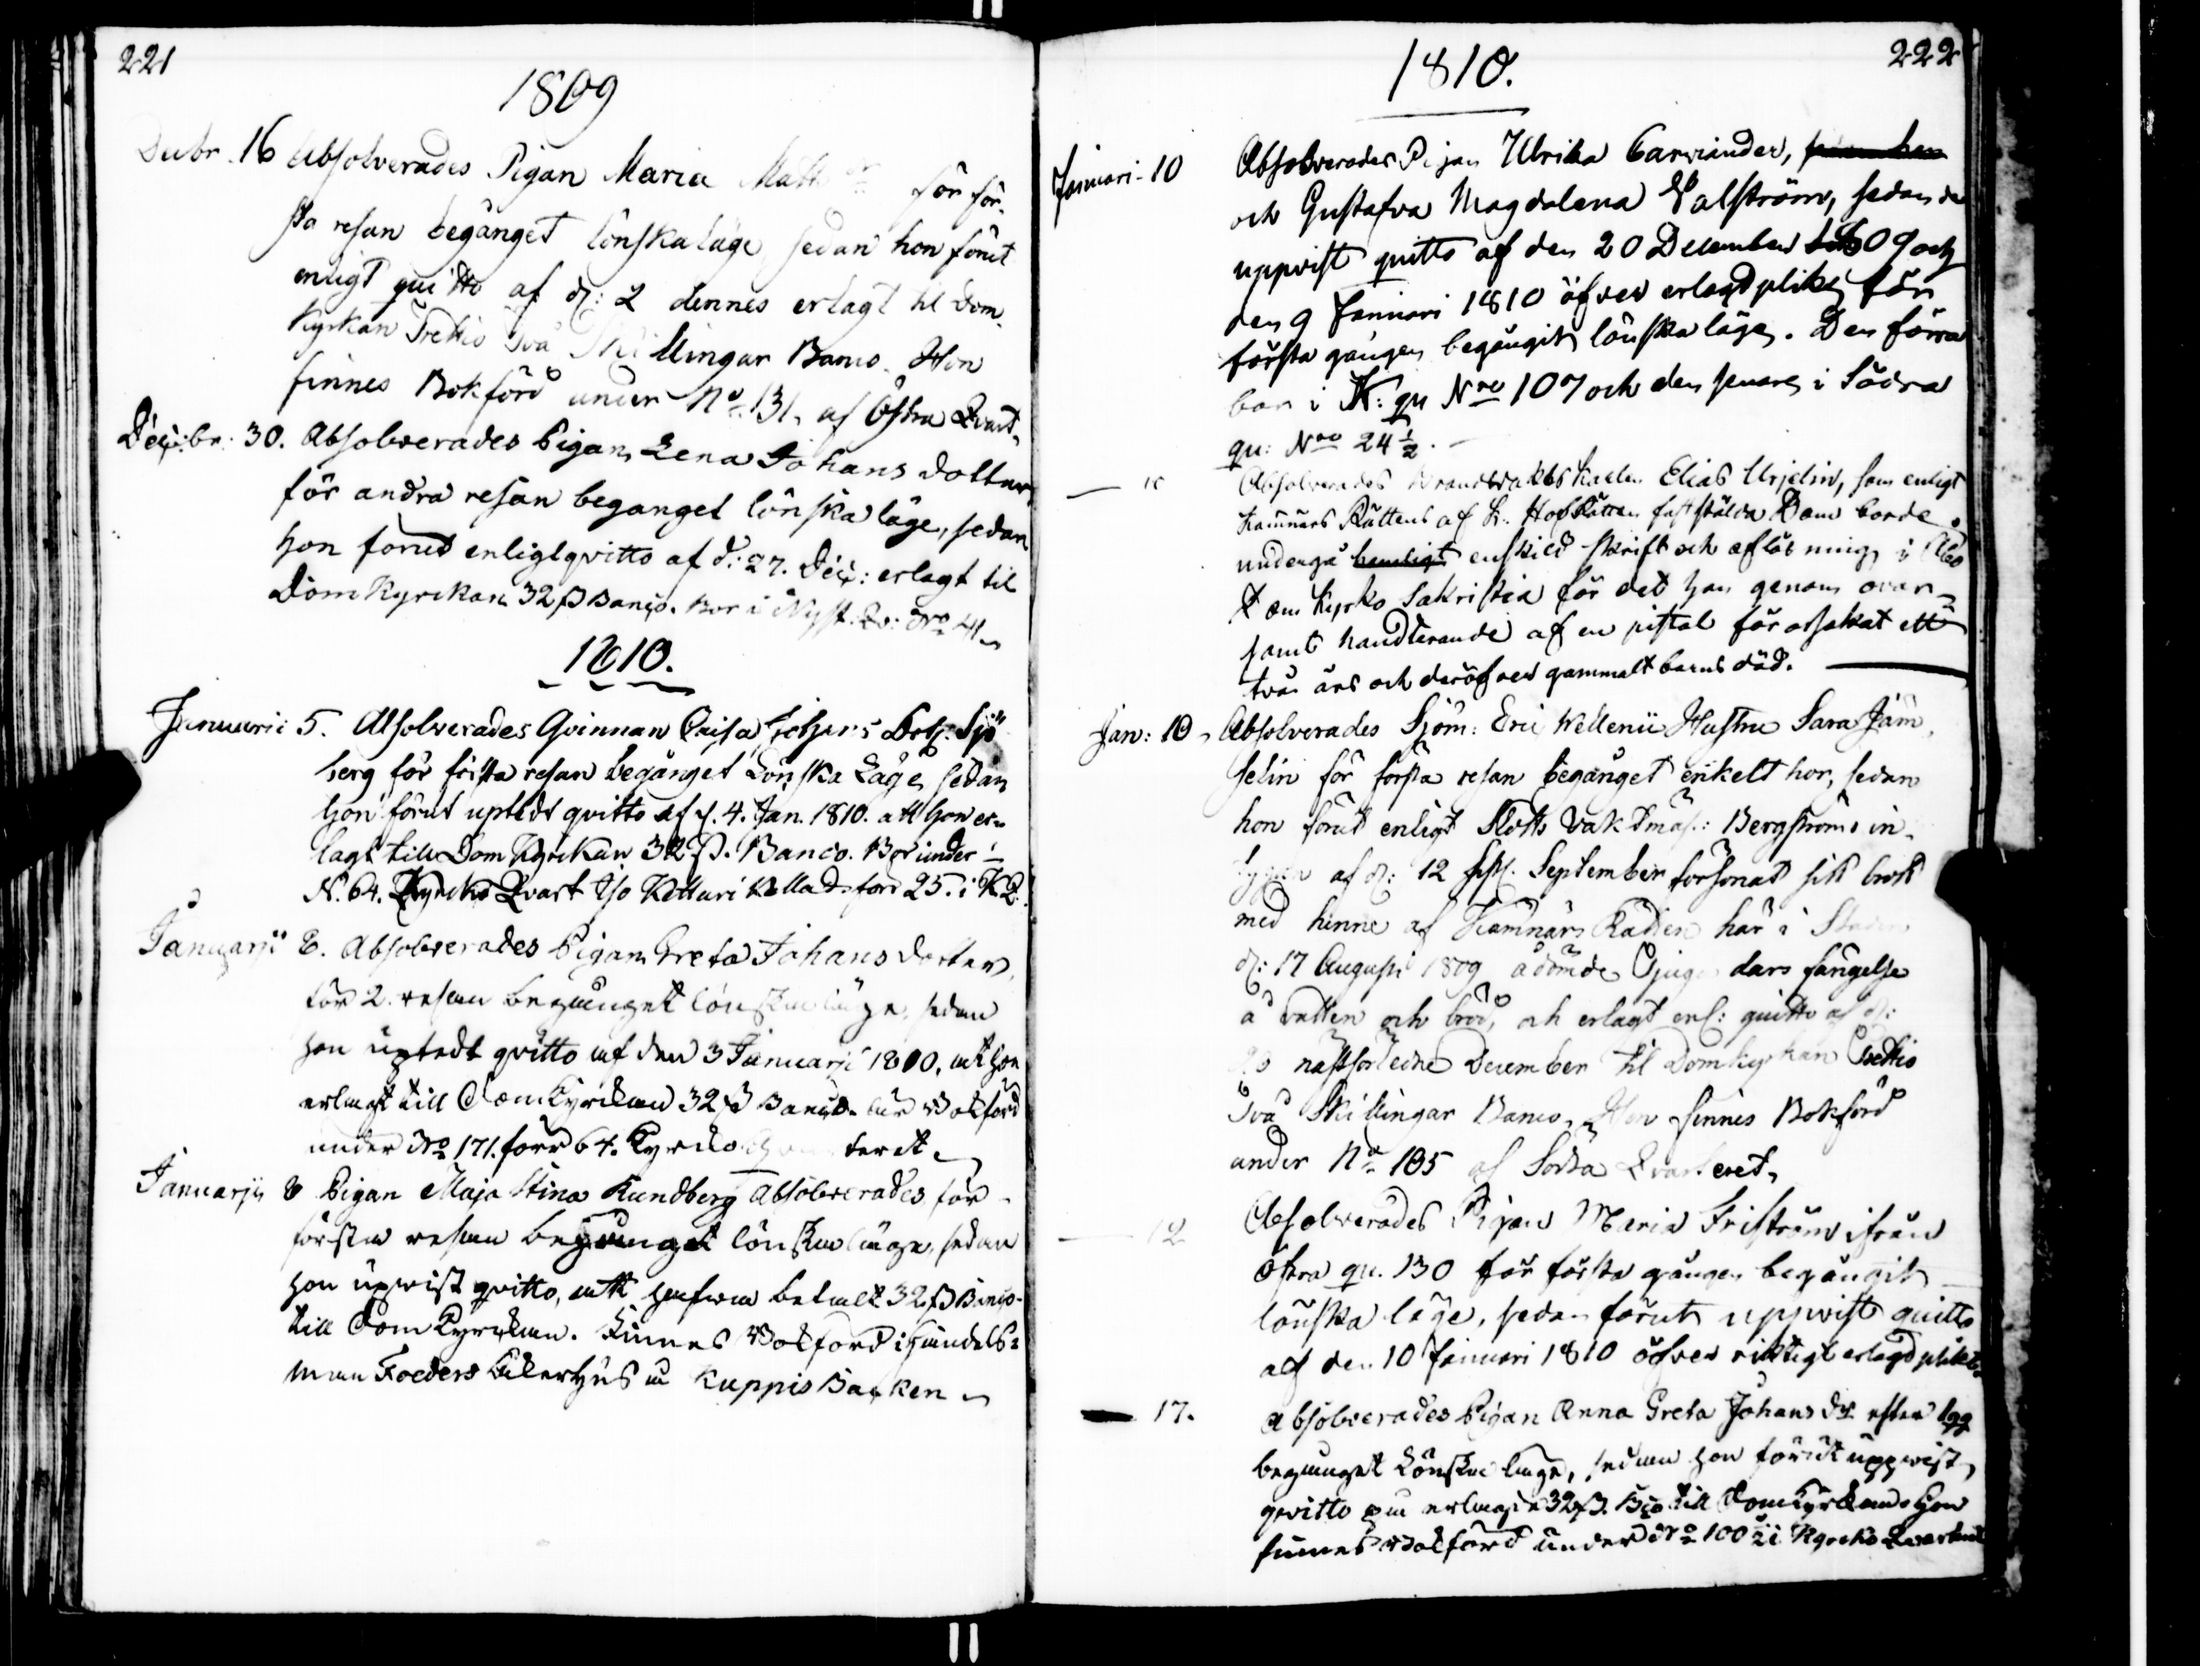 221
1809
Decbr. 16 Absolverades Pigan Maria Matts dr för för-
sta resan begånget lönskaläge, sedan hon förut
enligt quitto af d: 2 dennes erlagt til Dom-
kyrkan Trettio två Skillingar Banco. Hon
finnes Bokförd under No 131. af Östra Qvart.
Dec:br. 30. Absolverades Pigan Lena Johans dotter
för andra resan begånget lönska läge, sedan
hon förut enligt qvitto af d: 27. Dec: erlagt til
Domkyrkan 32 ß Banco. Bor i Nyst. Qv: No 41
1810.
Januarii 5. Absolverades Qvinnan Caisa Johans Dotr. Sjö-
berg för första resan begånget Lönska Läge, sedan
hon förut uptedt qvitto af d. 4. Jan. 1810. att hon er-
lagt till Dom Kyrkan 32 ß. Banco. Bor under
N. 64. Kyrcko Qvart. 25. i K.Q.
Januarii 8. Absolverades Pigan Greta Johans dotter,
för 2. resan begånget lönska läge, sedan
hon uptedt qvitto af den 3 Januarii 1810, att hon
erlagt till DomKyrckan 32 ß Banco. Är Bokförd
under No 171. förr 64. Kyrcko teret
Januarii 8 Pigan Maja Stina Rundberg Absolverades för
första resan begånget lönska läge, sedan
hon upvist qvitto, att betalt 32 ß Banco
till DomKyrckan. Finnes Bokförd i Handels-
man Foeders åkerhus å Kuppis Backen
222
1810.
Januari 10 Absolverades Pigan Ulrika Carviander,
och Gustafva Magdalena Valström, sedan de
uppvist quitto af den 20 December 1809 och
den 9 Januari 1810 öfver erlagd plikt för
första gången begångit lönska läge. Den förra
bor i K: qu Nro 107 och den senare i Södra
qu: Nro 24 1/2.
— 10 Absolverades Brandvakts Karlen Elias Urjelin, som enligt
Kämnärs Rättens af K. HofRätten fastställda Dom borde
undergå hemligt enskild skrift och aflösning i Åbo
Dom Kyrko Sakristia för det han genom ovar-
samt handterande af en pistol förorsakat ett
två års och deröfver gammalt barns död.
Jan: 10 Absolverades Sjöm: Eric Wellenii Hustru Sara Jäm-
selin för första resan begånget enkelt hor, sedan
hon förut enligt Slotts Vaktmäs: Bergströms in-
tygan af d: 12 sistl. September försonat sitt brott
med henne af Kämnärs Rätten här i Staden
d: 17 Augusti 1809 ådömde Tjugo dars fängelse
å vatten och bröd, och erlagt enl: quitto af d:
nästförledne December til Domkyrkan Trettio
Två Skillingar Banco, Hon finnes Bokförd
under No 105 af Södra Qvarteret
— 12 Absolverades Pigan Maria Friström ifrån
Östra qu. 130 för första gången begångit
lönska läge, sedan förut uppvist quitto
af den 10 Januari 1810 öfver riktigt erlagd plikt.
— 17. Absolverades Pigan Anna Greta Johans dr efter 1 gg
begånget Lönska läge, sedan hon förut uppvist
qvitto på erlagde 32 ß. Bco till DomKyrckan. Hon
finnes Bokförd under No 100 1/2 i Kyrcko Qvarteret